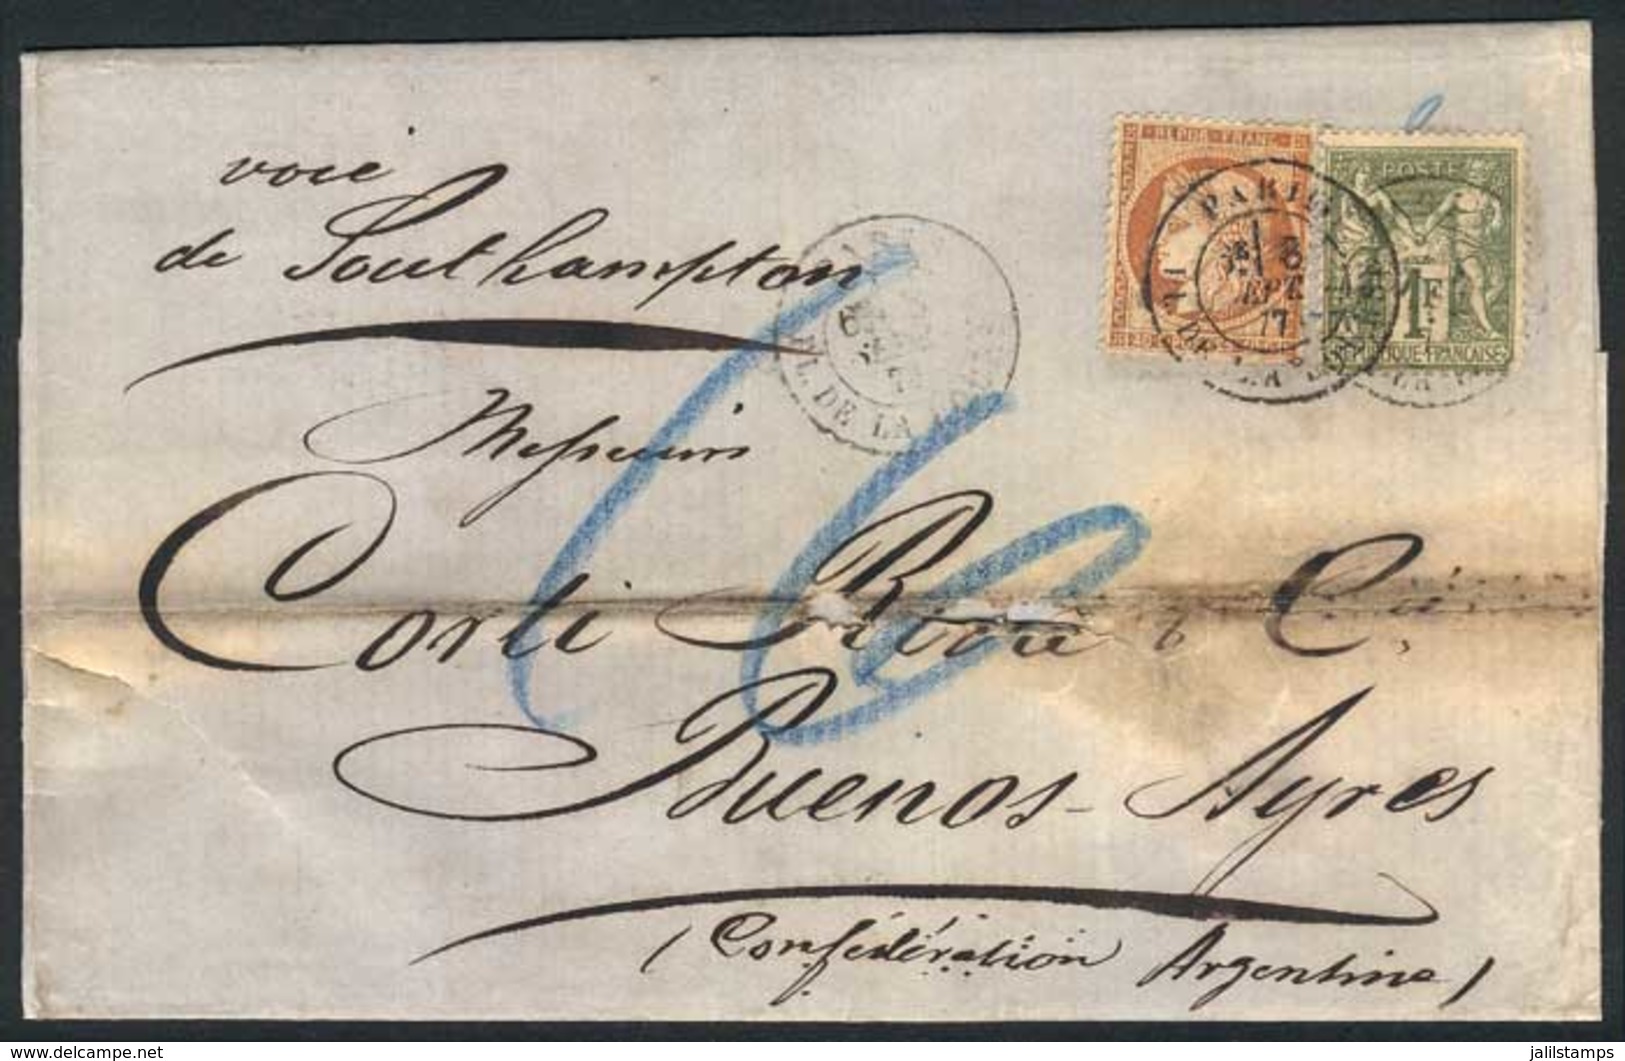 voie
de Southampton
REPUB · FRANC
POSTE
PARIS
6
SEPT
77
1F
REPUBLIQUE FRANÇAISE
PL. DE LA
Messieurs
Corli & Cie
Buenos-Ayres
(Confédération Argentine)
16
delcampe.net
jalilstamps